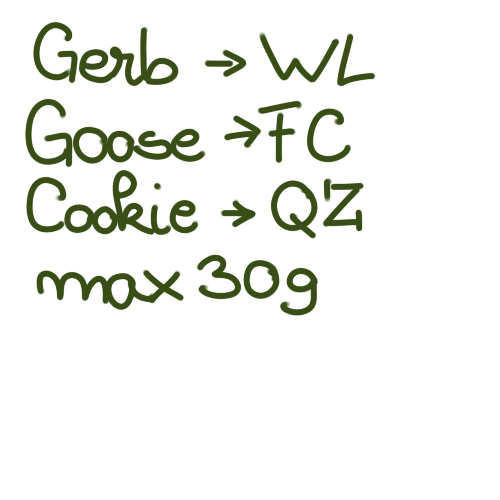 Gerb → WL
Goose → FC
Cookie → QZ
max 30g